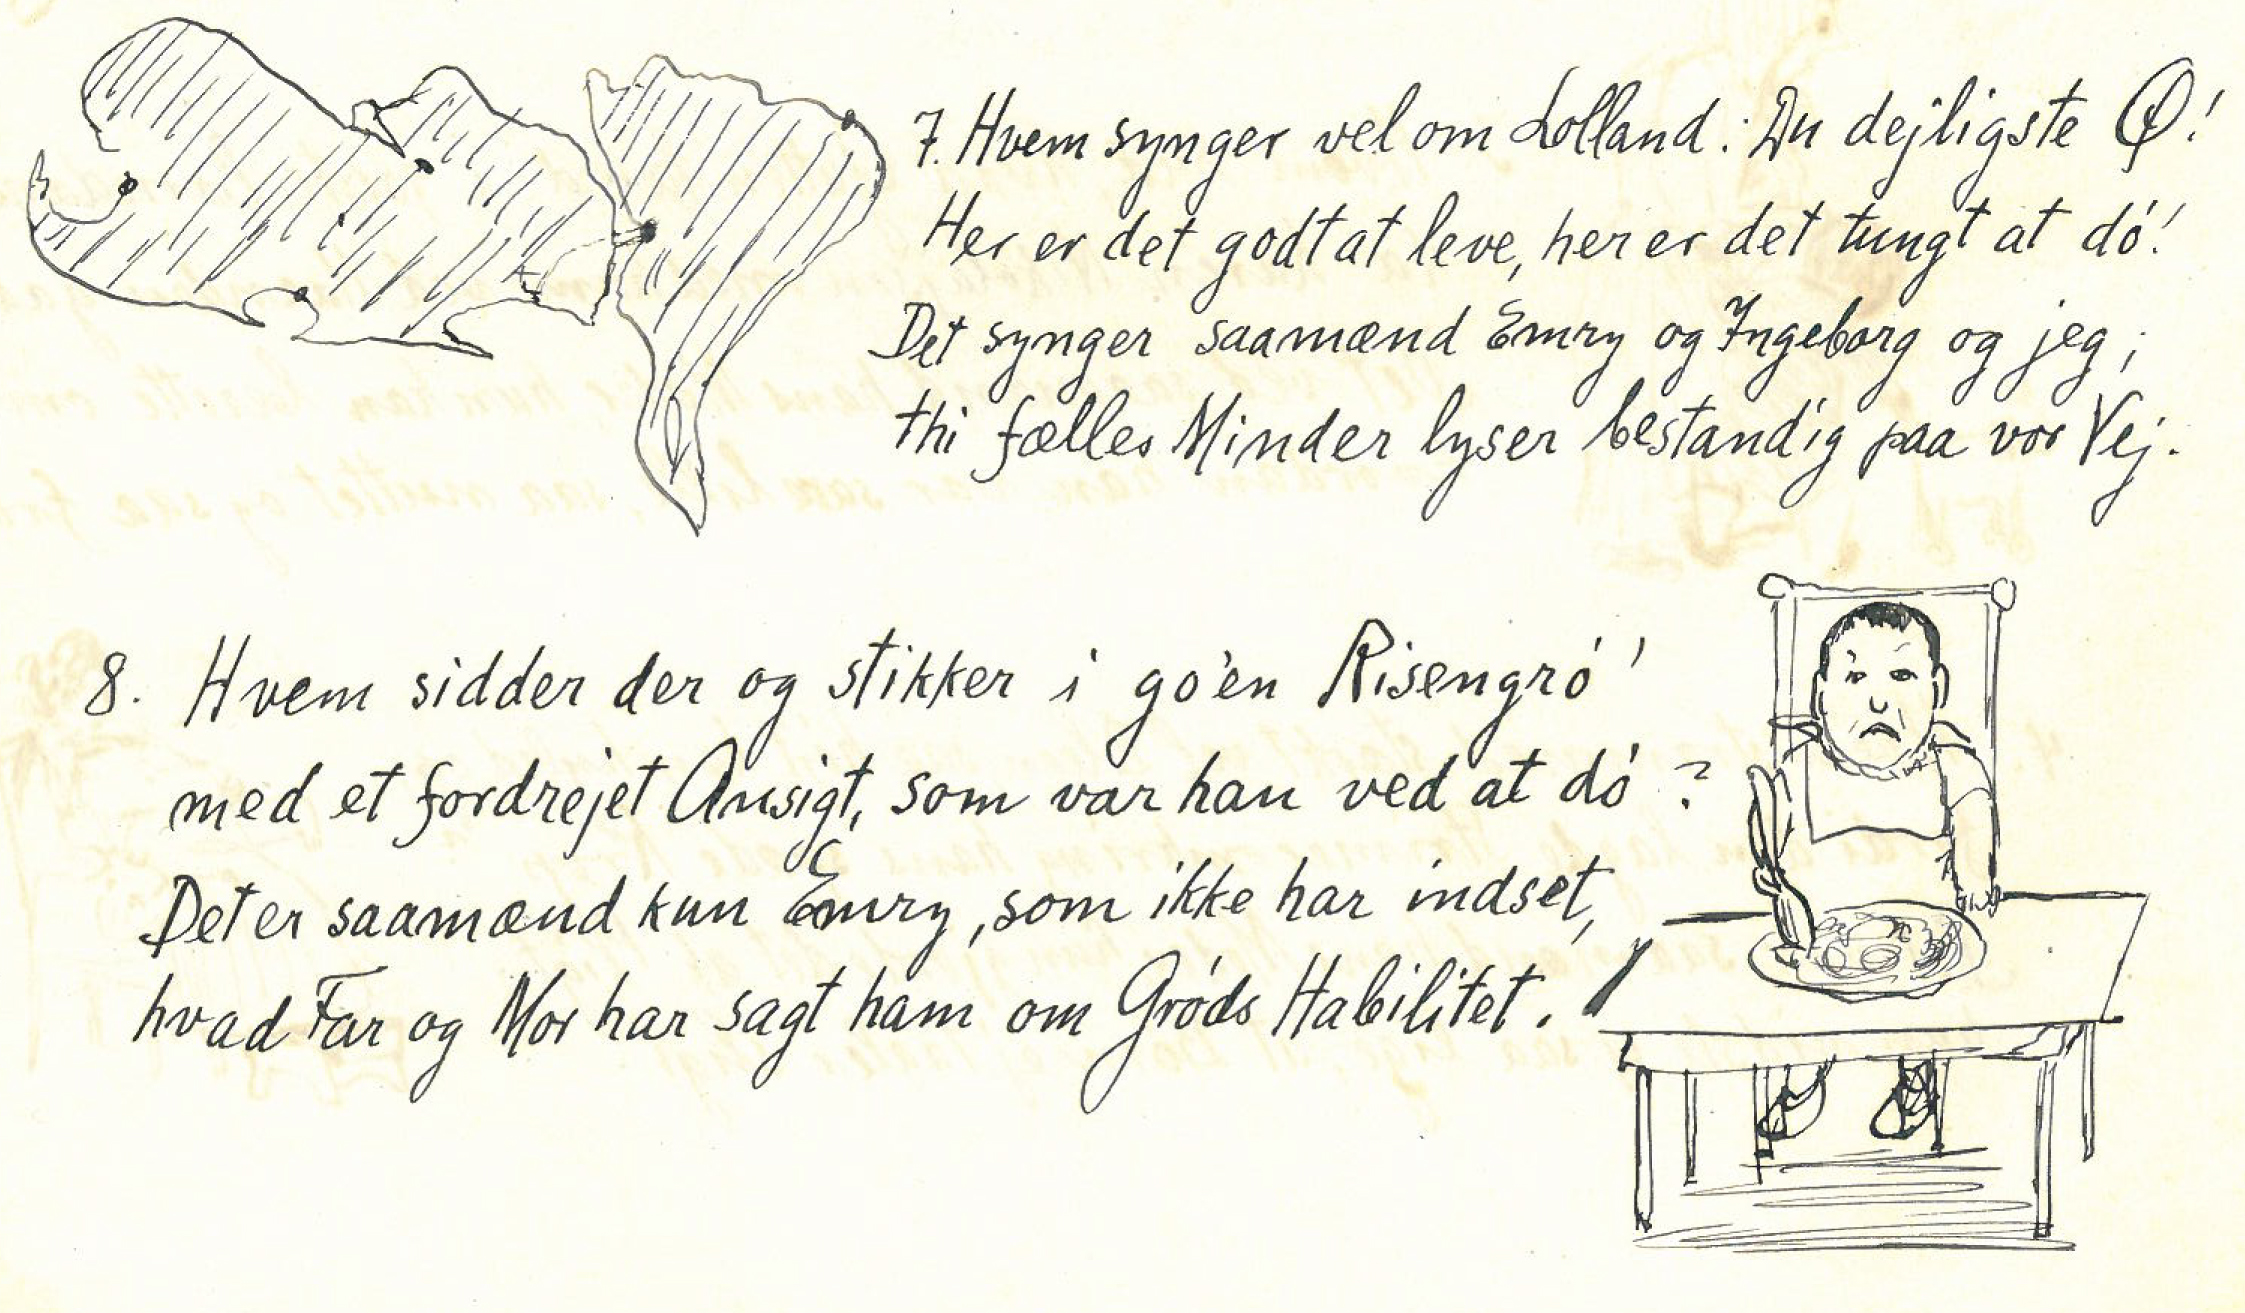 7. Hvem synger vel om Lolland: Du dejligste Ø!
Her er det godt at leve, her er det tungt at dó!
Det synger saamænd Emry og Ingeborg og jeg;
thi fælles Minder lyser bestandig paa vor Vej.
8. Hvem sidder der og stikker i go'en Risengró'
med et fordrejet Ansigt, som var han ved at dó?
Det er saamænd kun Emry, som ikke har indset,
hvad Far og Mor har sagt ham om Gróds Habilitet.